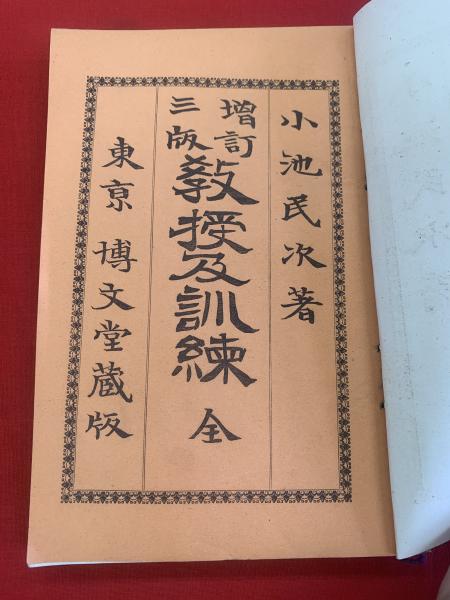 小池民次著
増訂
三版
教授及訓練 全
東京 博文堂蔵版